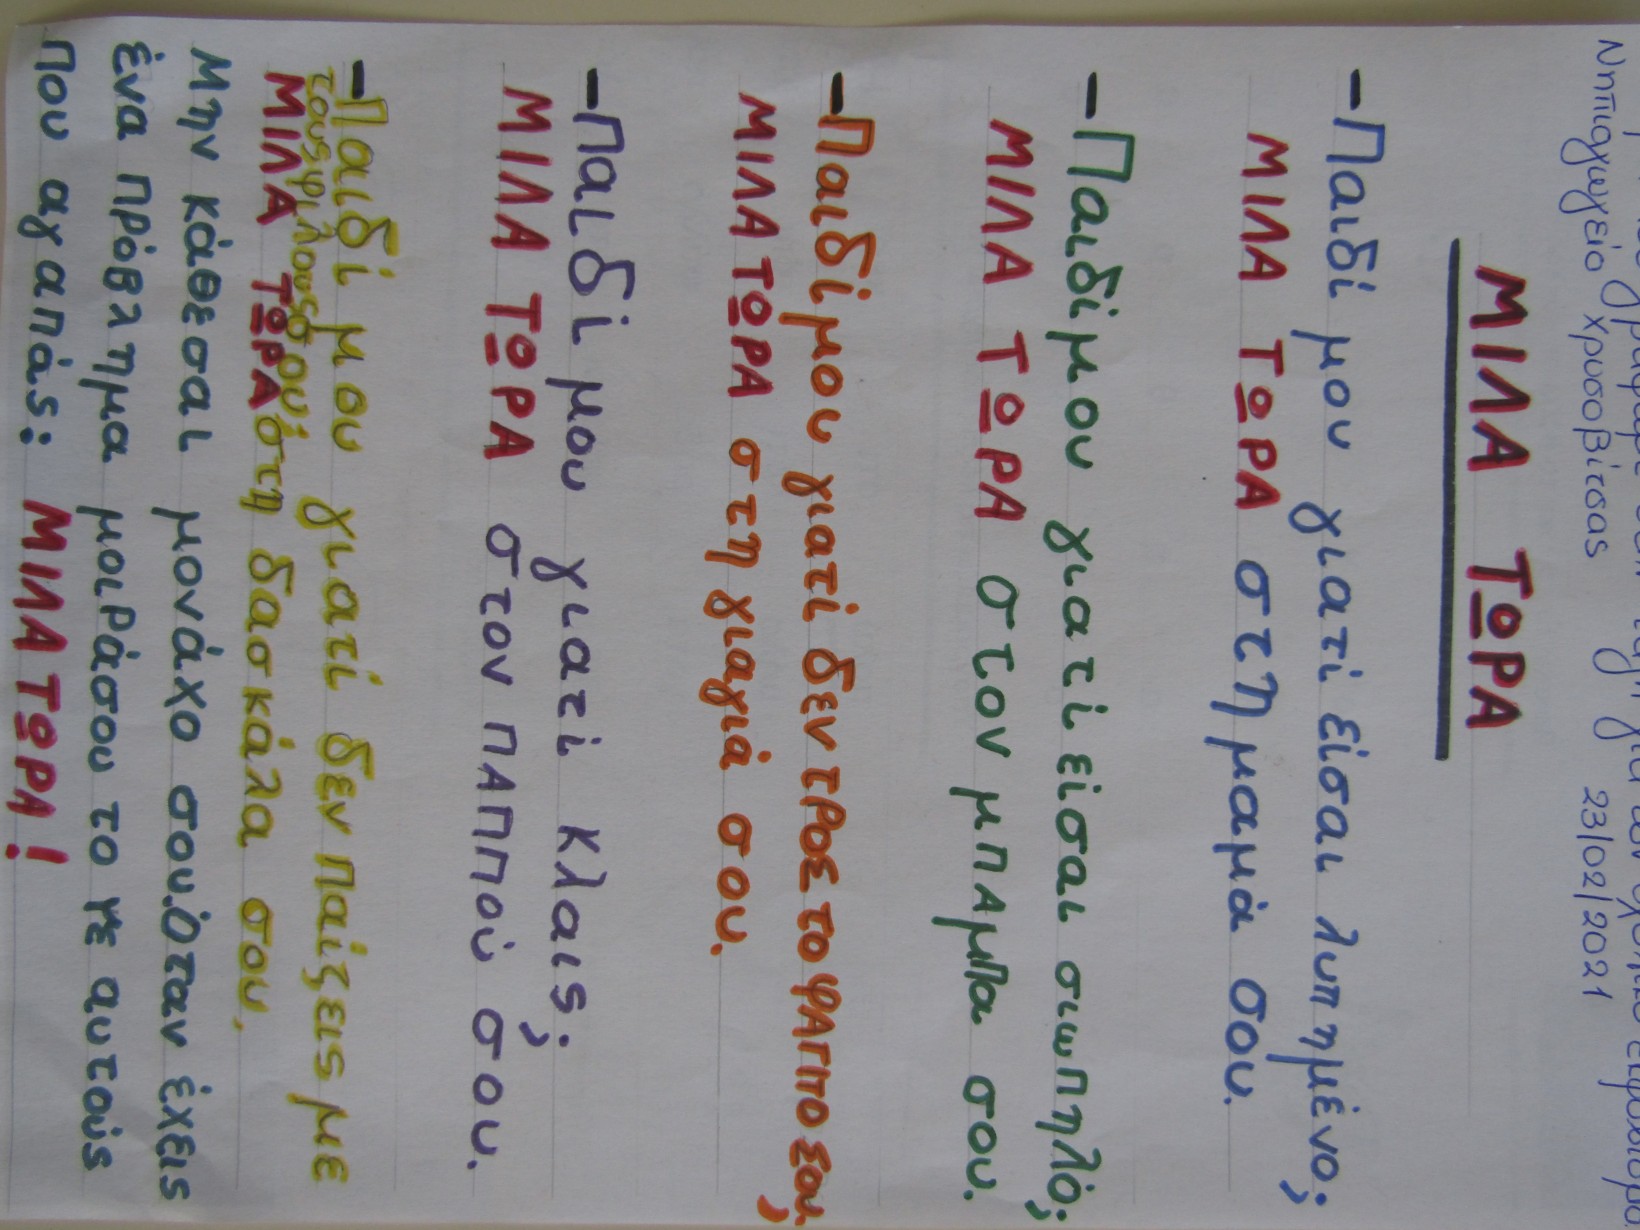 Νηπιαγωγείο Χρυσοβίτσας 23/02/2021
ΜΙΛΑ ΤΩΡΑ
-Παιδί μου γιατί είσαι λυπημένο;
ΜΙΛΑ ΤΩΡΑ στη μαμά σου.
-Παιδί μου γιατί είσαι σιωπηλό;
ΜΙΛΑ ΤΩΡΑ στον μπαμπα σου.
-Παιδί μου γιατί δεν τρως το φαγιτο σου;
ΜΙΛΑ ΤΩΡΑ στη γιαγιά σου.
-Παιδί μου γιατί κλαις;
ΜΙΛΑ ΤΩΡΑ στον παππού σου.
-Παιδί μου γιατί δεν παίζεις με
τους φίλους σου;
ΜΙΛΑ ΤΩΡΑ στη δασκάλα σου.
Μην κάθεσαι μονάχο σου. Όταν έχεις
ένα πρόβλημα μοιράσου το με αυτούς
που αγαπάς: ΜΙΛΑ ΤΩΡΑ!